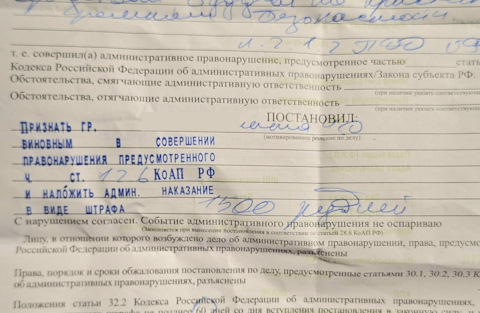 безопасности
п. 2.1.2 ПДД РФ
т. е. совершил(а) административное правонарушение, предусмотренное частью стать
Кодекса Российской Федерации об административных правонарушениях/Закона субъекта РФ.
Обстоятельства, смягчающие административную ответственность
(при наличии указать соответствующие
Обстоятельства, отягчающие административную ответственность
(при наличии указать соответствующие
ПОСТАНОВИЛ:
ПРИЗНАТЬ ГР.
(мотивированное решение по делу)
ВИНОВНЫМ В СОВЕРШЕНИИ
ПРАВОНАРУШЕНИЯ ПРЕДУСМОТРЕННОГО
Ч. СТ. 12.6 КоАП РФ
И НАЛОЖИТЬ АДМИН. НАКАЗАНИЕ
В ВИДЕ ШТРАФА 1500 рублей
С нарушением согласен. Событие административного правонарушения не оспариваю
(Заполняется при вынесении постановления в соответствии со статьей 28.6 КоАП РФ)
Лицу, в отношении которого возбуждено дело об административном правонарушении, права, предусмо
Российской Федерации об административных правонарушениях, разъяснены
Права, порядок и сроки обжалования постановления по делу, предусмотренные статьями 30.1, 30.2, 30.3 К
об административных правонарушениях, разъяснены
Положения статьи 32.2 Кодекса Российской Федерации об административных правонарушениях,
штрафа не позднее 60 дней со дня вступления постановления в законную силу